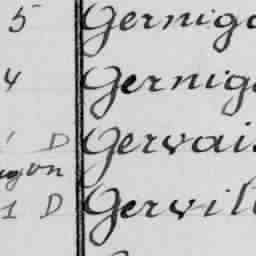 5 Gernigo
4 Gernig
D Gervais
1 D Gervil